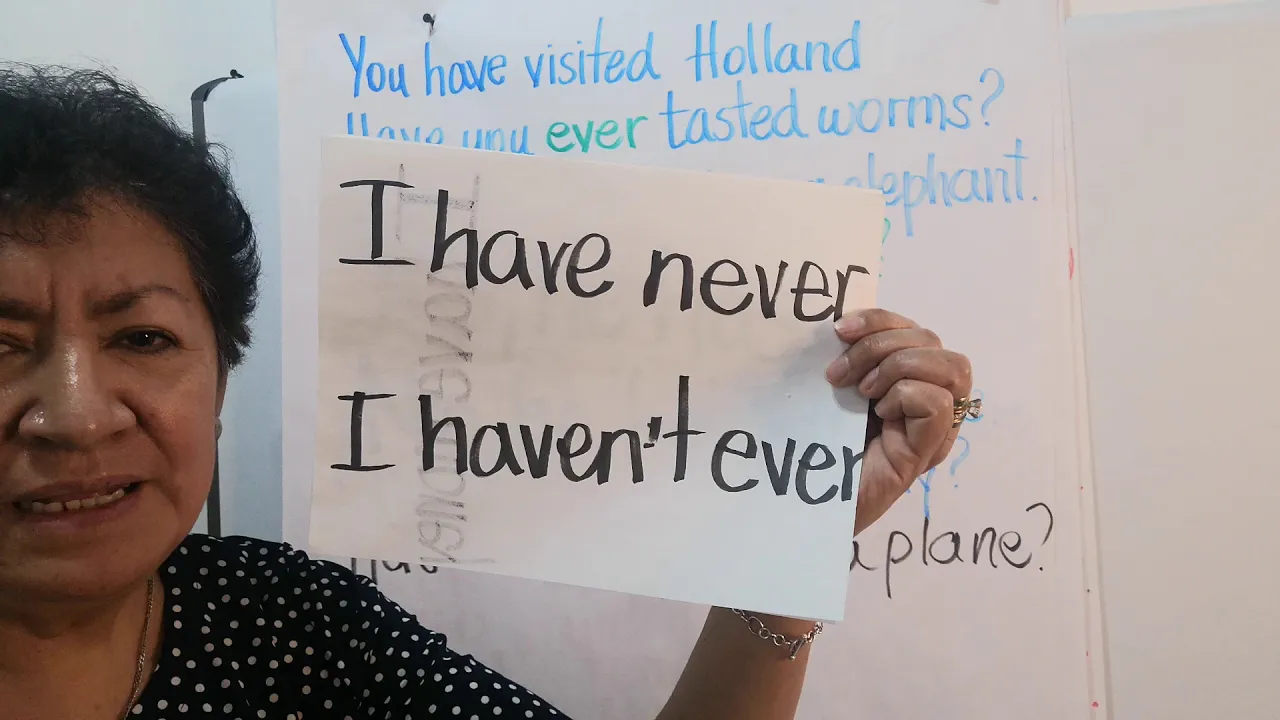 You have visited Holland
Have you ever tasted worms?
elephant.
I have never
I haven't ever
a plane?